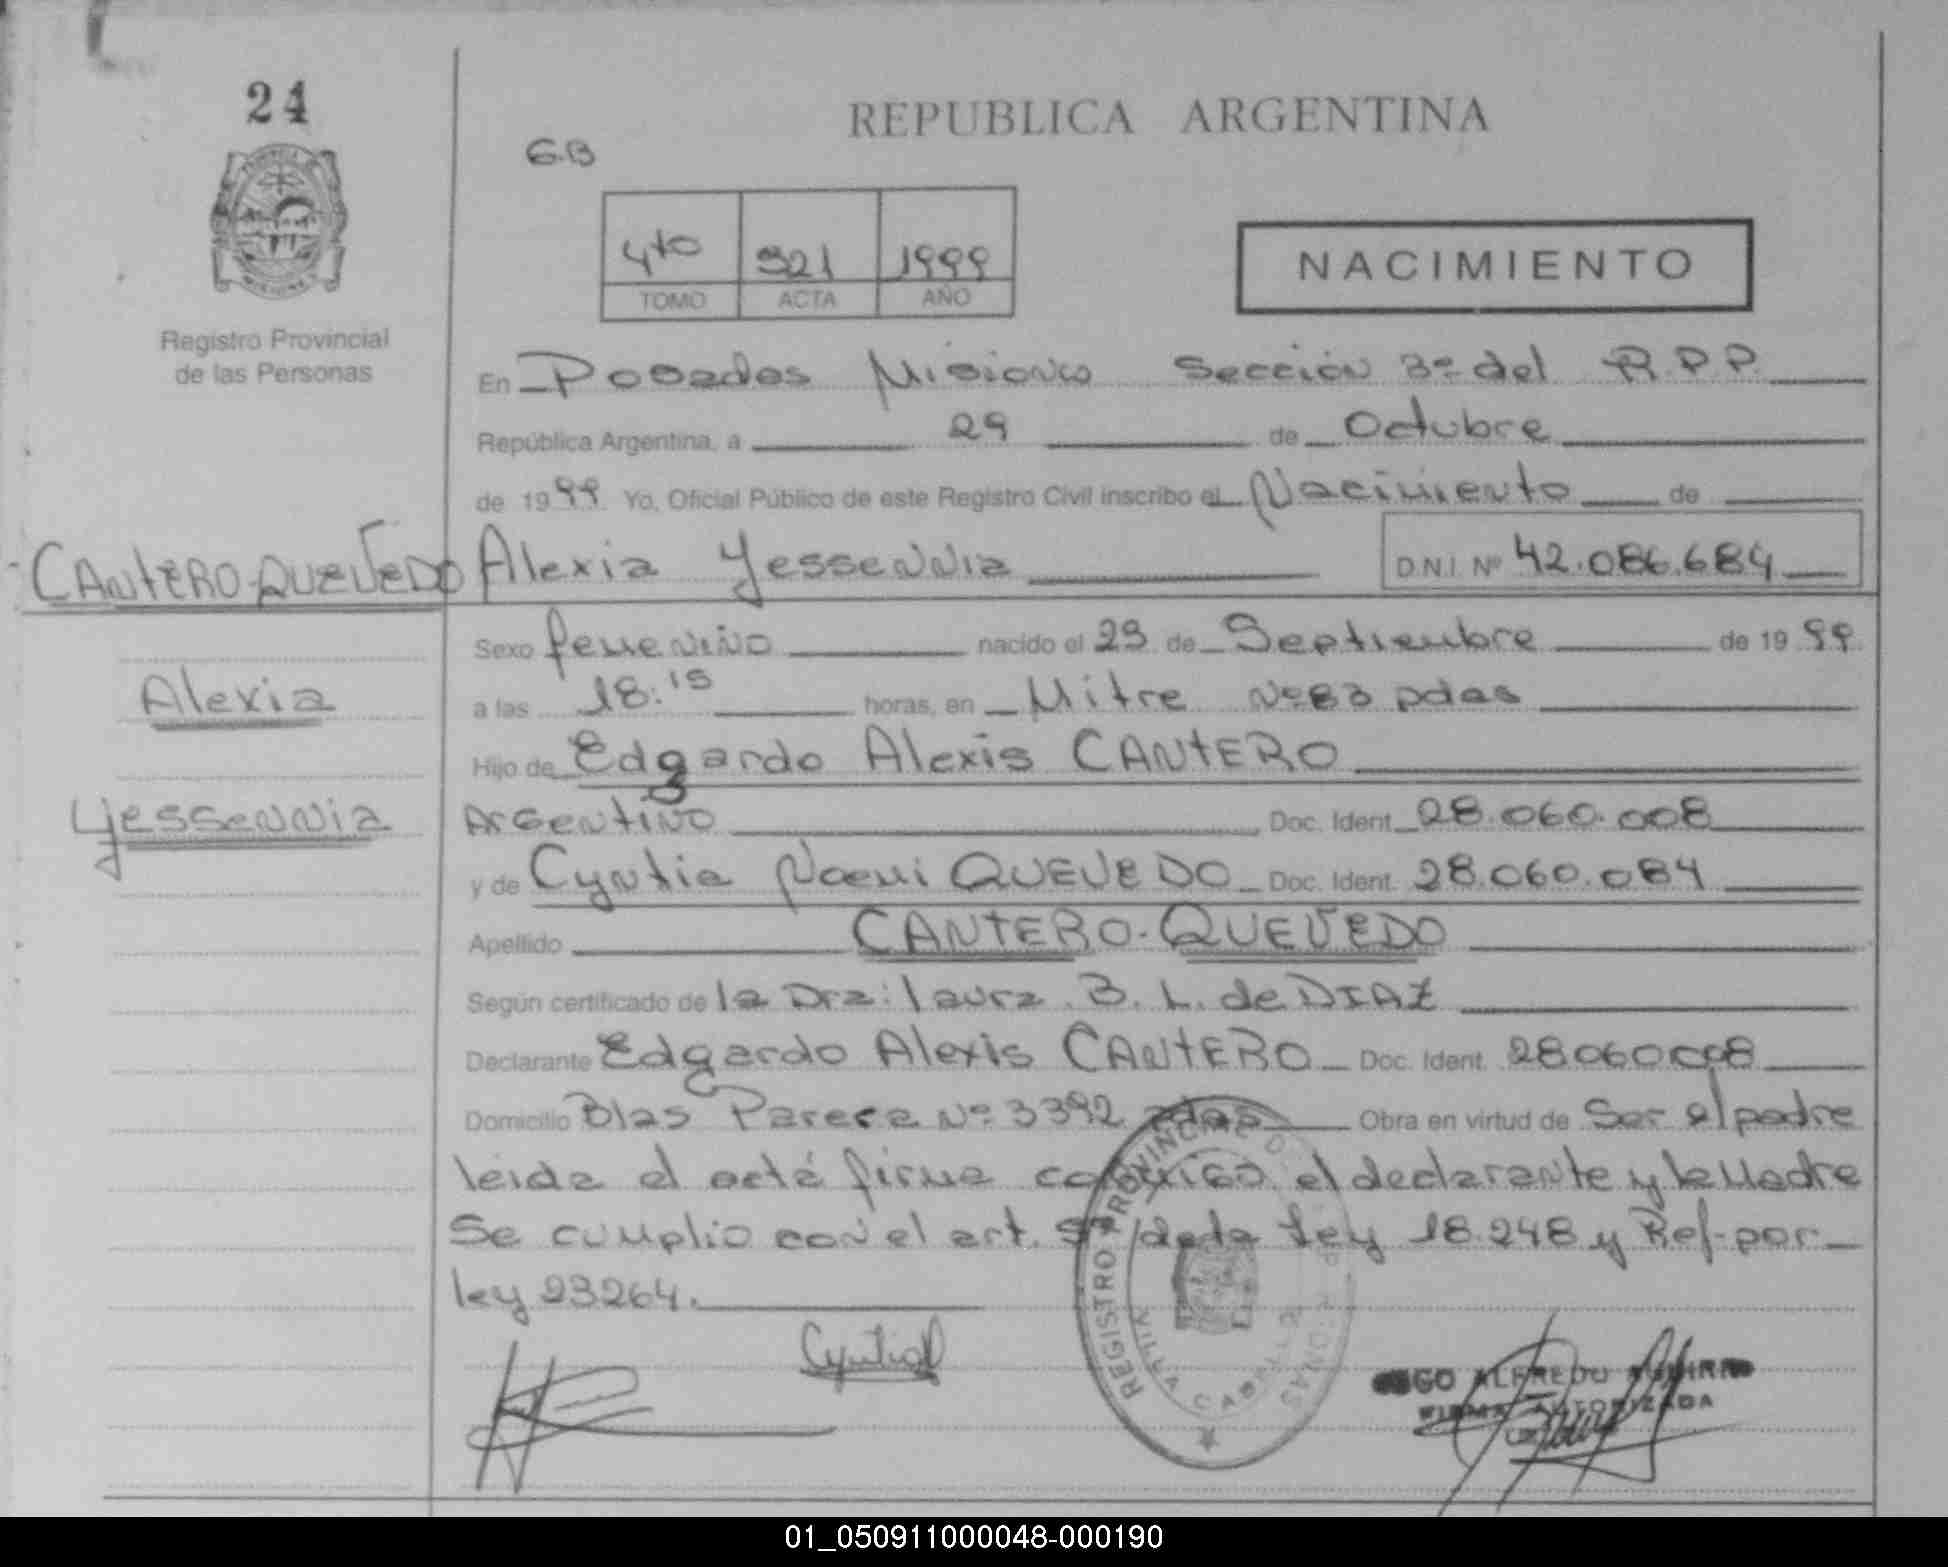 24
REPUBLICA ARGENTINA
G.B
4to 321 1999
TOMO ACTA AÑO
NACIMIENTO
Registro Provincial
de las Personas
En Posadas Misiones Sección 3º del R.P.P.
República Argentina, a 29 de Octubre
de 1999 Yo, Oficial Público de este Registro Civil inscribo el Nacimiento de
CANTERO-QUEVEDO Alexia Yessennia D.N.I. Nº 42.086.684
Sexo femenino nacido el 29 de Septiembre de 1999
Alexia
a las 18:15 horas, en Mitre Nº 83 pdas
Hijo de Edgardo Alexis CANTERO
Yessennia
Argentino Doc. Ident. 28.060.008
y de Cyntia Noemi QUEVEDO Doc. Ident. 28.060.084
Apellido CANTERO-QUEVEDO
Según certificado de la Dra: laura B. L. de DIAZ
Declarante Edgardo Alexis CANTERO Doc. Ident. 28060008
Domicilio Blas Parera Nº 3392 pdas Obra en virtud de Ser el padre
leida el acta firma conmigo el declarante y la Madre
Se cumplio con el art. de la Ley 18.248 y Ref. por
ley 23264.
Cyntia
REGISTRO PROVINCIAL DE
VILLA CABELLO
ALFREDO
FIRMA AUTORIZADA
01_050911000048-000190